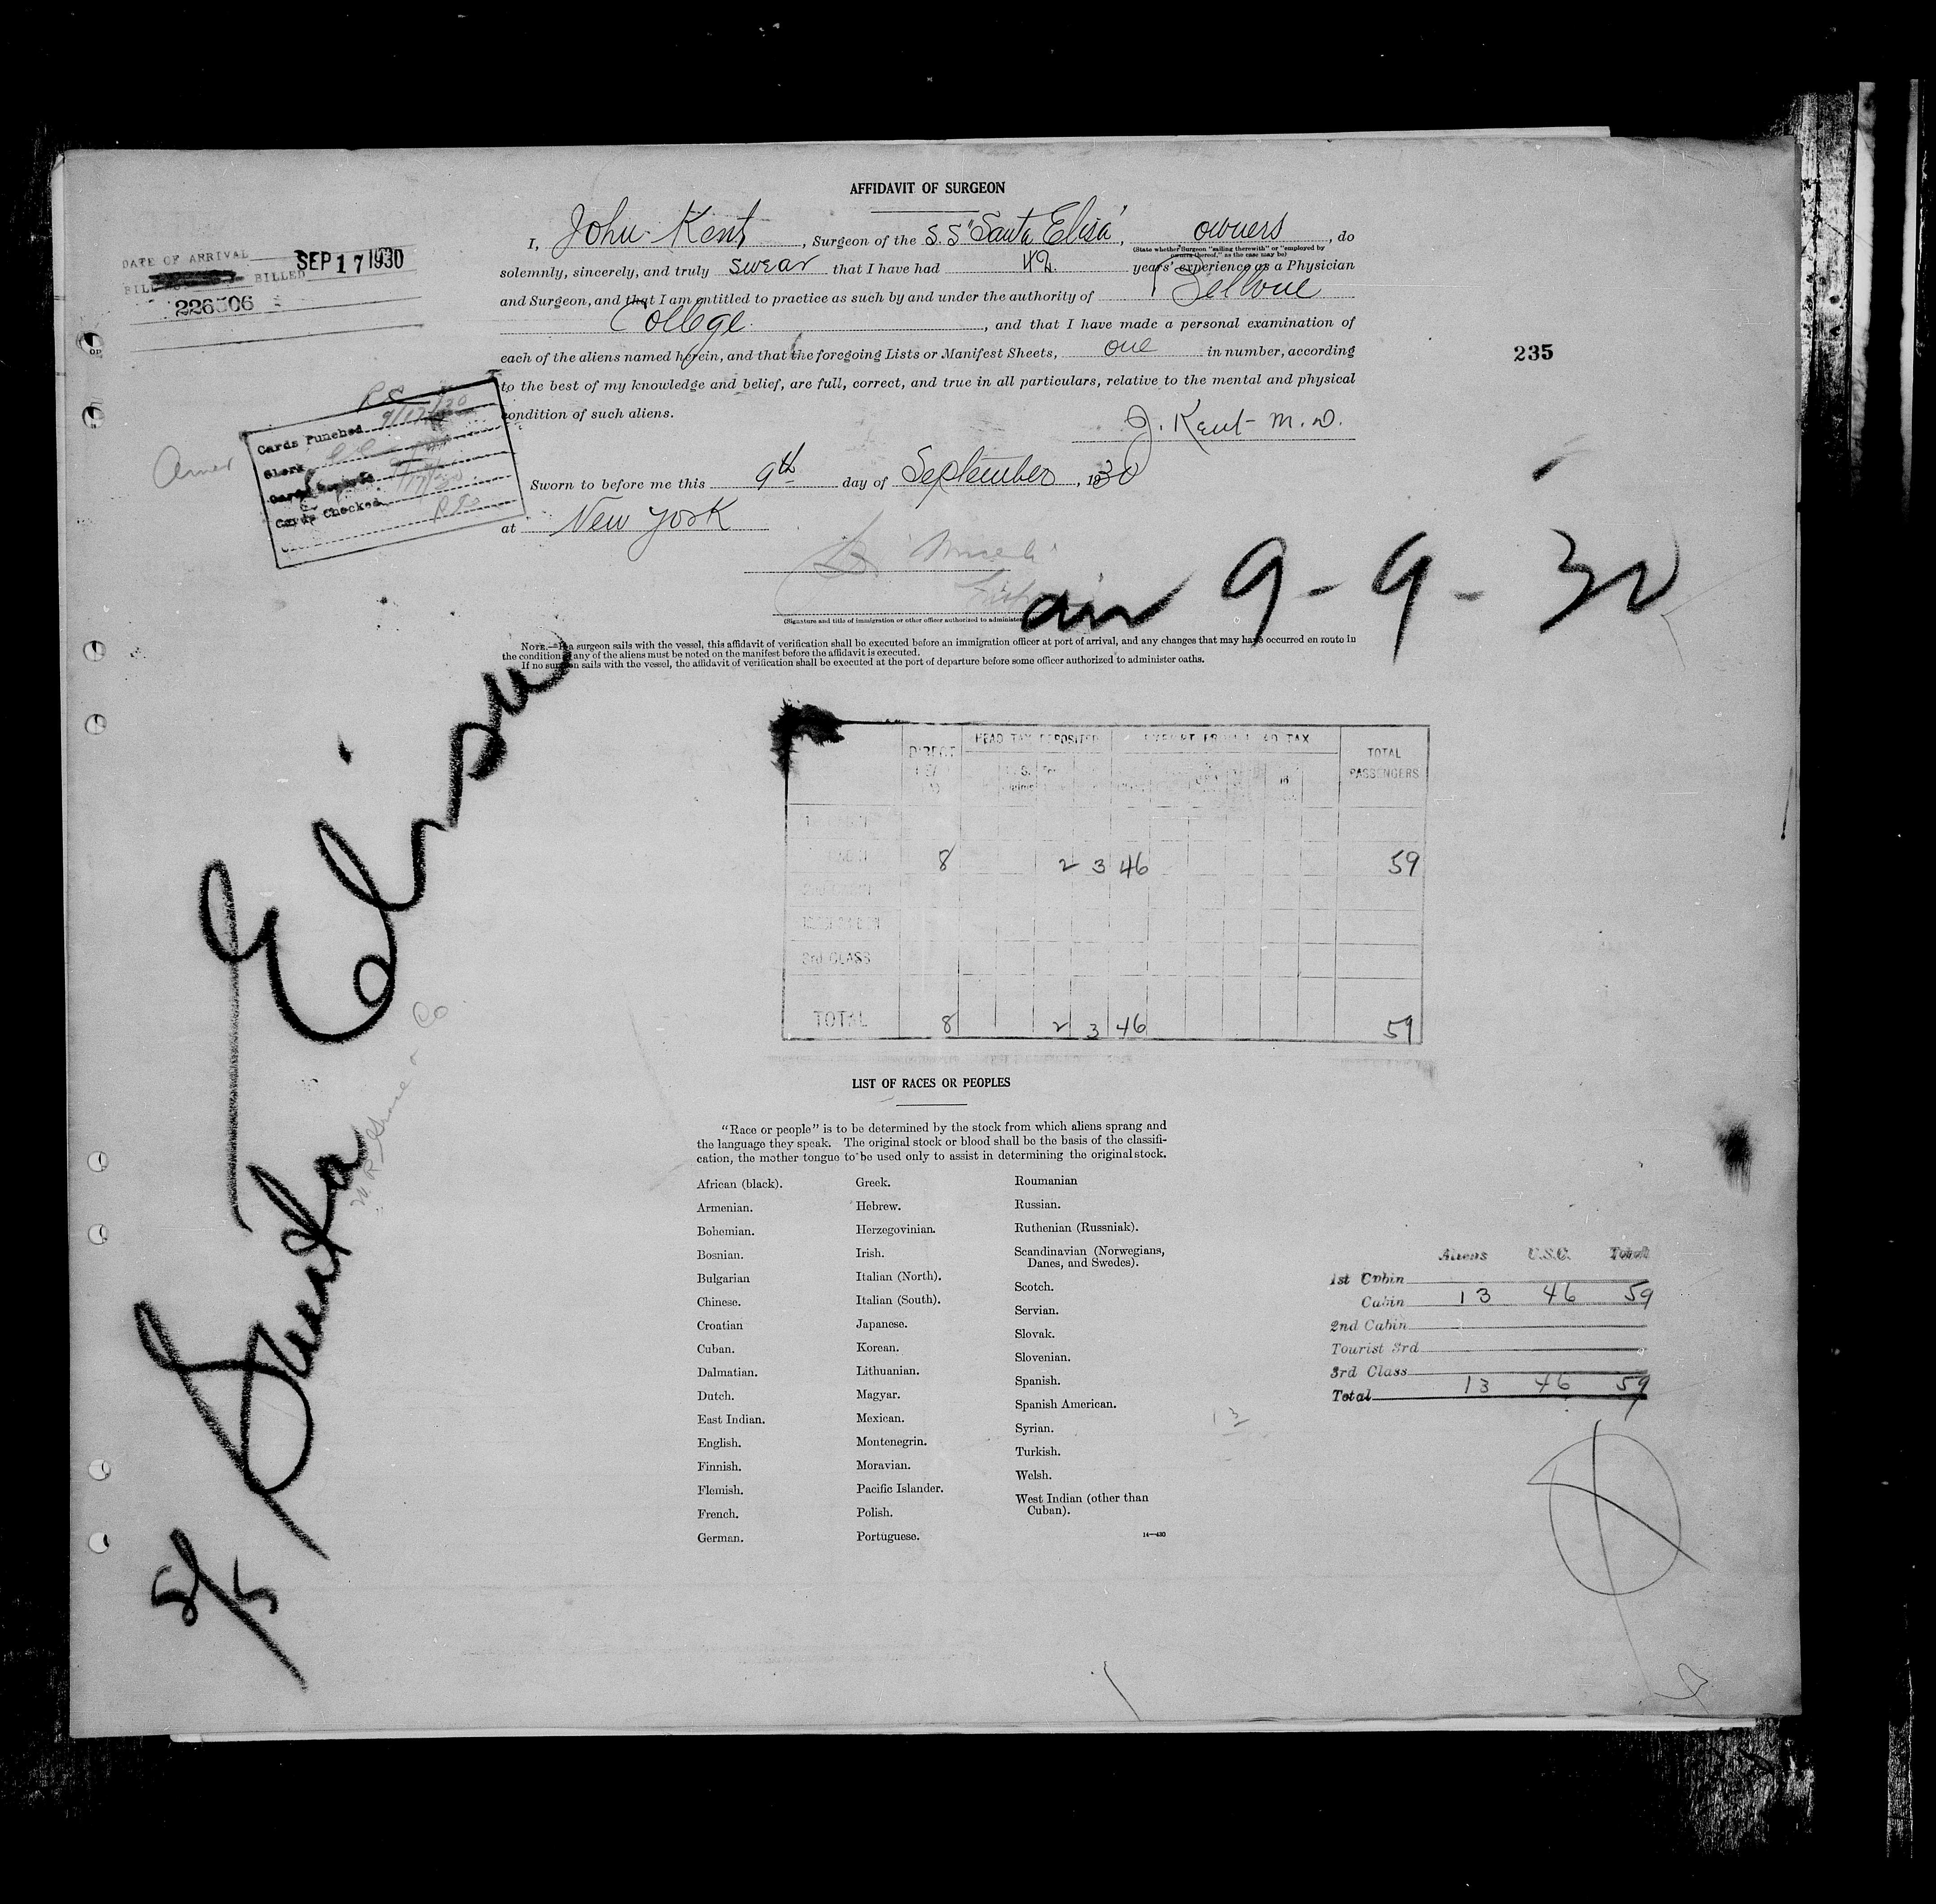 AFFIDAVIT OF SURGEON
I, John Kent, Surgeon of the S.S "Santa Elisa", owners, do
(State whether Surgeon "sailing therewith" or "employed by
owners thereof," as the case may be)
solemnly, sincerely, and truly swear that I have had 42 years' experience as a Physician
and Surgeon, and that I am entitled to practice as such by and under the authority of Bellvue
College., and that I have made a personal examination of
each of the aliens named herein, and that the foregoing Lists or Manifest Sheets, one in number, according
to the best of my knowledge and belief, are full, correct, and true in all particulars, relative to the mental and physical
condition of such aliens.
J. Kent M.D.
Sworn to before me this 9th day of September, 1930
at New York
DATE OF ARRIVAL
BILLED SEP 17 1930
226506
235
Cards Punched 9/17/30
Clerk
Cards Checked
arr 9-9-30
(Signature and title of immigration or other officer authorized to administer
NOTE.—If a surgeon sails with the vessel, this affidavit of verification shall be executed before an immigration officer at port of arrival, and any changes that may have occurred en route in
the condition of any of the aliens must be noted on the manifest before the affidavit is executed.
If no surgeon sails with the vessel, the affidavit of verification shall be executed at the port of departure before some officer authorized to administer oaths.
S/S Santa Elisa
DIRECT HEAD TAX DEPOSITED EXEMPT FROM HEAD TAX TOTAL
PASSENGERS
8 2 3 46 59
3rd CLASS
TOTAL 8 2 3 46 59
LIST OF RACES OR PEOPLES
"Race or people" is to be determined by the stock from which aliens sprang and
the language they speak. The original stock or blood shall be the basis of the classifi-
cation, the mother tongue to be used only to assist in determining the original stock.
African (black).
Armenian.
Bohemian.
Bosnian.
Bulgarian
Chinese.
Croatian
Cuban.
Dalmatian.
Dutch.
East Indian.
English.
Finnish.
Flemish.
French.
German.
Greek.
Hebrew.
Herzegovinian.
Irish.
Italian (North).
Italian (South).
Japanese.
Korean.
Lithuanian.
Magyar.
Mexican.
Montenegrin.
Moravian.
Pacific Islander.
Polish.
Portuguese.
Roumanian
Russian.
Ruthenian (Russniak).
Scandinavian (Norwegians,
Danes, and Swedes).
Scotch.
Servian.
Slovak.
Slovenian.
Spanish.
Spanish American.
Syrian.
Turkish.
Welsh.
West Indian (other than
Cuban).
14—430
13
Aliens U.S.C. Total
1st Cabin
Cabin 13 46 59
2nd Cabin
Tourist 3rd
3rd Class
Total 13 46 59